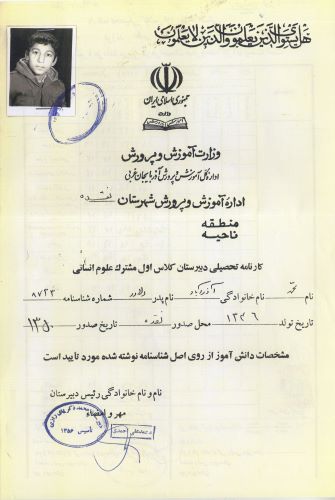 هل یستوی الذین یعلمون والذین لایعلمون
جمهوری اسلامی ایران
وزارت آموزش و پرورش
اداره کل آموزش و پرورش آذربایجان غربی
اداره آموزش و پرورش شهرستان نقده
منطقه
ناحیه
کارنامه تحصیلی دبیرستان کلاس اول مشترک علوم انسانی
نام خانوادگی نام پدر شماره شناسنامه ۸۷۲۳
تاریخ تولد ۱۳۴۶ محل صدور نقده تاریخ صدور ۱۳۵۰
مشخصات دانش آموز از روی اصل شناسنامه نوشته شده مورد تایید است
نام و نام خانوادگی رئیس دبیرستان
مهر و امضاء
تاسیس ۱۳۵۶